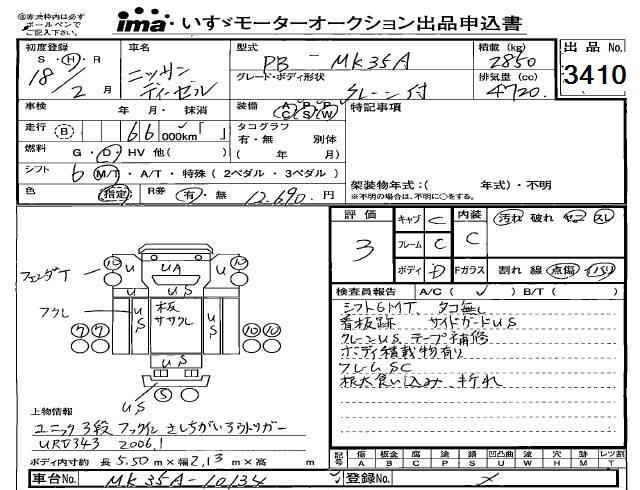 ※赤太枠内は必ず
ボールペンで
ご記入下さい。
ima・いすゞモーターオークション出品申込書
初度登録
S・H・R
18/2月
車名
ニッサン
ディーゼル
型式
PB - MK35A
グレード・ボディ形状
クレーン付
積載 (kg)
2850
排気量 (cc)
4720
出品 No.
3410
車検 年 月・ 抹消
装備 AC PS PW
特記事項
走行 B 66 000km「 」
タコグラフ
有・無 別体
( 年 月)
燃料 G・D・HV 他( )
シフト 6 M/T・A/T・特殊 (2ペダル・3ペダル)
色 指定 R券 有・無 12,690 円
架装物年式:( 年式)・不明
※不明の場合は、不明に○をする。
評価
3
キャブ C
フレーム C
ボディ D
内装
C
Fガラス
汚れ 破れ ヤニ スレ
割れ 線 点傷 イバリ
検査員報告 A/C ( ✓ ) B/T ( )
シフト6MT、タコ無し
看板跡 サイドガードUS
クレーンUS テープ補修
ボディ積載物有り
フレームSC
根太食い込み、折れ
フェンダーT
フクレ
10
10
U
UA
U
US
US
板
ササクレ
US
7
7
10
10
US
US
5
上物情報
ユニック 3段 フックイン さしちがいアウトリガー
URV343 2006.1
ボディ内寸約 長 5.50 m×幅 2.13 m×高 m
記号
傷 A
板金 B
腐 C
塗 P
錆 S
凹凸曲 U
波 W
穴 H
跡 M
レツ割 T
車台No. MK35A-10134
登録No. ×